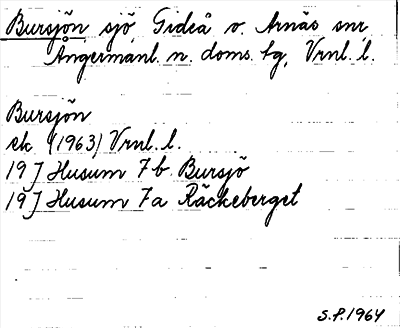 Bursjön sjö, Gideå o. Arnäs snr,
Ångermanl. n. doms. tg, Vrnl. l.
Bursjön
ek (1963) Vrnl. l.
19J Husum 7b. Bursjö
19J Husum 7a Räckeberget
S.P. 1964